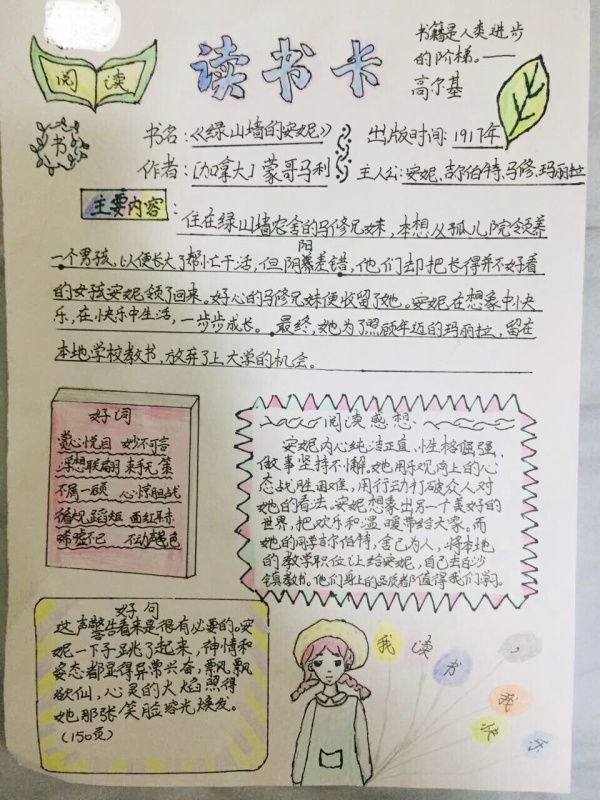 阅读
读书卡
书籍是人类进步
的阶梯。——
高尔基
书
书名:《绿山墙的安妮》
出版时间:1917年
作者:[加拿大]蒙哥马利
主人公:安妮,吉尔伯特,马修,玛丽拉
主要内容:
住在绿山墙农舍的马修兄妹,本想从孤儿院领养
一个男孩,以便长大了帮忙干活,但阴阳差错,他们却把长得并不好看
的女孩安妮领了回来。好心的马修兄妹便收留了她。安妮在想象中快
乐,在快乐中生活,一步步成长。最终,她为了照顾年迈的玛丽拉,留在
本地学校教书,放弃了上大学的机会。
好词
赏心悦目 妙不可言
浮想联翩 束手无策
不屑一顾 心惊胆战
循规蹈矩 面红耳赤
唏嘘不已 不动声色
阅读感想
安妮内心纯洁正直,性格倔强,
做事坚持不懈。她用乐观向上的心
态战胜困难,用行动打破众人对
她的看法。安妮想象出另一个美好的
世界,把欢乐和温暖带给大家。而
她的同学吉尔伯特,舍己为人,将本地
的教学职位让给安妮,自己去白沙
镇教书。他们身上的品质都值得我们学习。
好句
这声警告看来是很有必要的。安
妮一下子跳了起来,神情和
姿态都显得异常兴奋,飘飘
欲仙,心灵的火焰照得
她那张笑脸容光焕发。
(150页)
我读书,我快乐